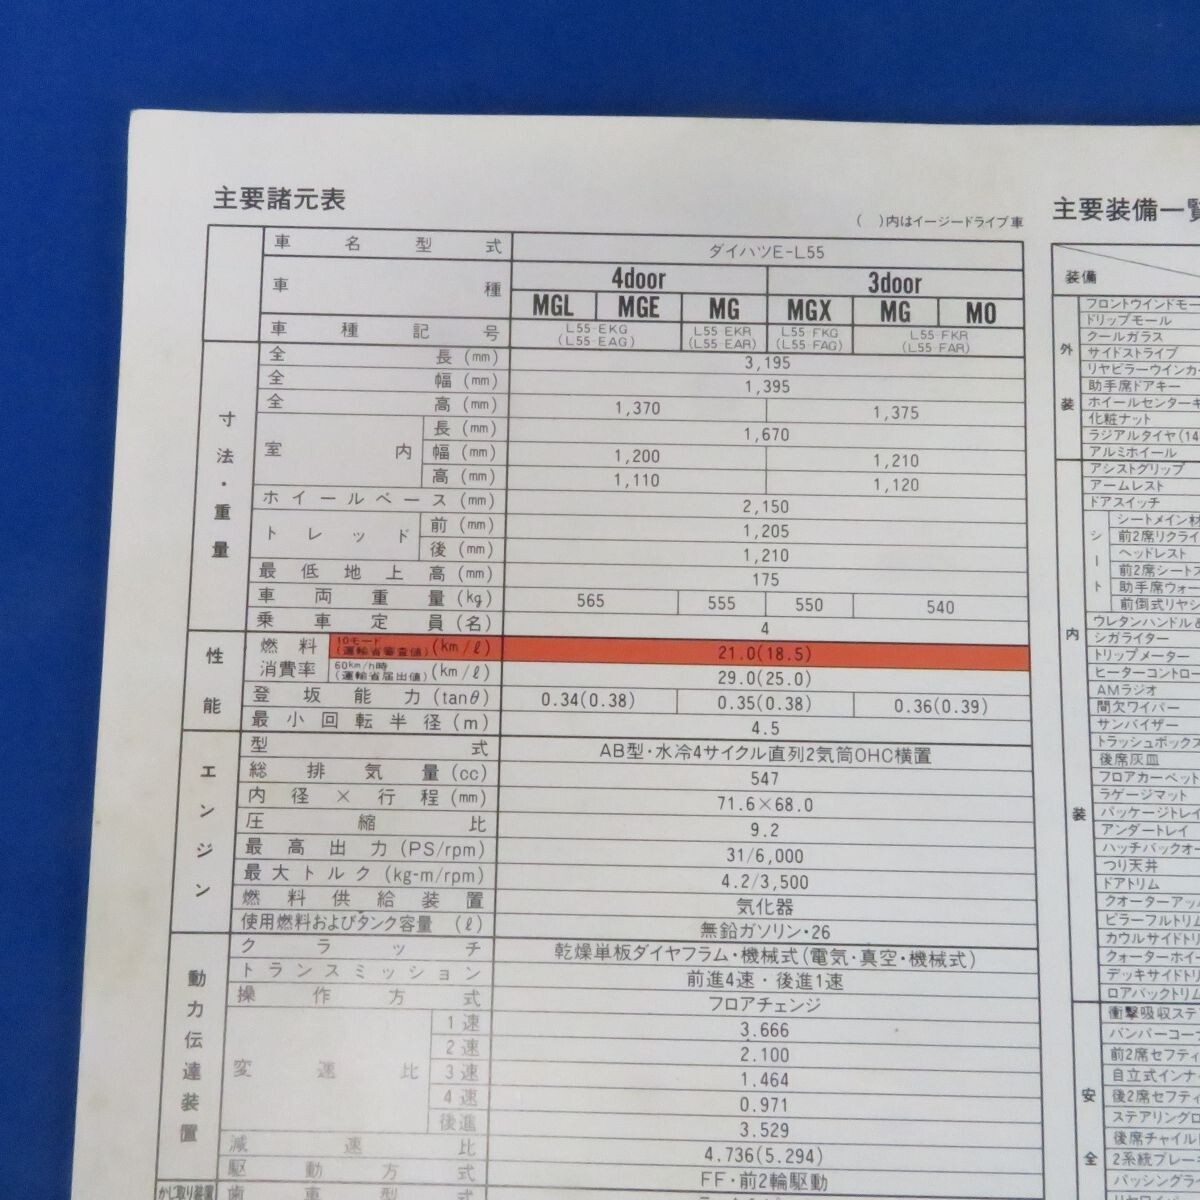 主要諸元表
( )内はイージードライブ車
車名型式 ダイハツE-L55
車種 4door 3door
MGL MGE MG MGX MG MO
車種記号 L55-EKG (L55-EAG) L55-EKR (L55-EAR) L55-FKG (L55-FAG) L55-FKR (L55-FAR)
寸法・重量
全長(mm) 3,195
全幅(mm) 1,395
全高(mm) 1,370 1,375
室内 長(mm) 1,670
幅(mm) 1,200 1,210
高(mm) 1,110 1,120
ホイールベース(mm) 2,150
トレッド 前(mm) 1,205
後(mm) 1,210
最低地上高(mm) 175
車両重量(kg) 565 555 550 540
乗車定員(名) 4
性能
燃料消費率 10モード(運輸省審査値)(km/ℓ) 21.0(18.5)
60km/h時(運輸省届出値)(km/ℓ) 29.0(25.0)
登坂能力(tanθ) 0.34(0.38) 0.35(0.38) 0.36(0.39)
最小回転半径(m) 4.5
エンジン
型式 AB型・水冷4サイクル直列2気筒OHC横置
総排気量(cc) 547
内径×行程(mm) 71.6×68.0
圧縮比 9.2
最高出力(PS/rpm) 31/6,000
最大トルク(kg-m/rpm) 4.2/3,500
燃料供給装置 気化器
使用燃料およびタンク容量(ℓ) 無鉛ガソリン・26
動力伝達装置
クラッチ 乾燥単板ダイヤフラム・機械式(電気・真空・機械式)
トランスミッション 前進4速・後進1速
操作方式 フロアチェンジ
変速比 1速 3.666
2速 2.100
3速 1.464
4速 0.971
後進 3.529
減速比 4.736(5.294)
駆動方式 FF・前2輪駆動
かじ取り装置
歯車型式
主要装備一覧
装備
外装
フロントウインドモー
ドリップモール
クールガラス
サイドストライプ
リヤピラーウインカー
助手席ドアキー
ホイールセンターキ
化粧ナット
ラジアルタイヤ(14
アルミホイール
内装
アシストグリップ
アームレスト
ドアスイッチ
シート
シートメイン材
前2席リクライ
ヘッドレスト
前2席シートス
助手席ウォー
前倒式リヤシ
ウレタンハンドル&
シガライター
トリップメーター
ヒーターコントロー
AMラジオ
間欠ワイパー
サンバイザー
トラッシュボックス
後席灰皿
フロアカーペット
ラゲージマット
パッケージトレイ
アンダートレイ
ハッチバックオー
つり天井
ドアトリム
クオーターアッパ
ピラーフルトリム
カウルサイドトリ
クォーターホイー
デッキサイドトリ
ロアバックトリム
安全
衝撃吸収ステア
バンパーコー
前2席セフティ
自立式インナ
後2席セフティ
ステアリングロ
後席チャイル
2系統ブレー
パッシングラ